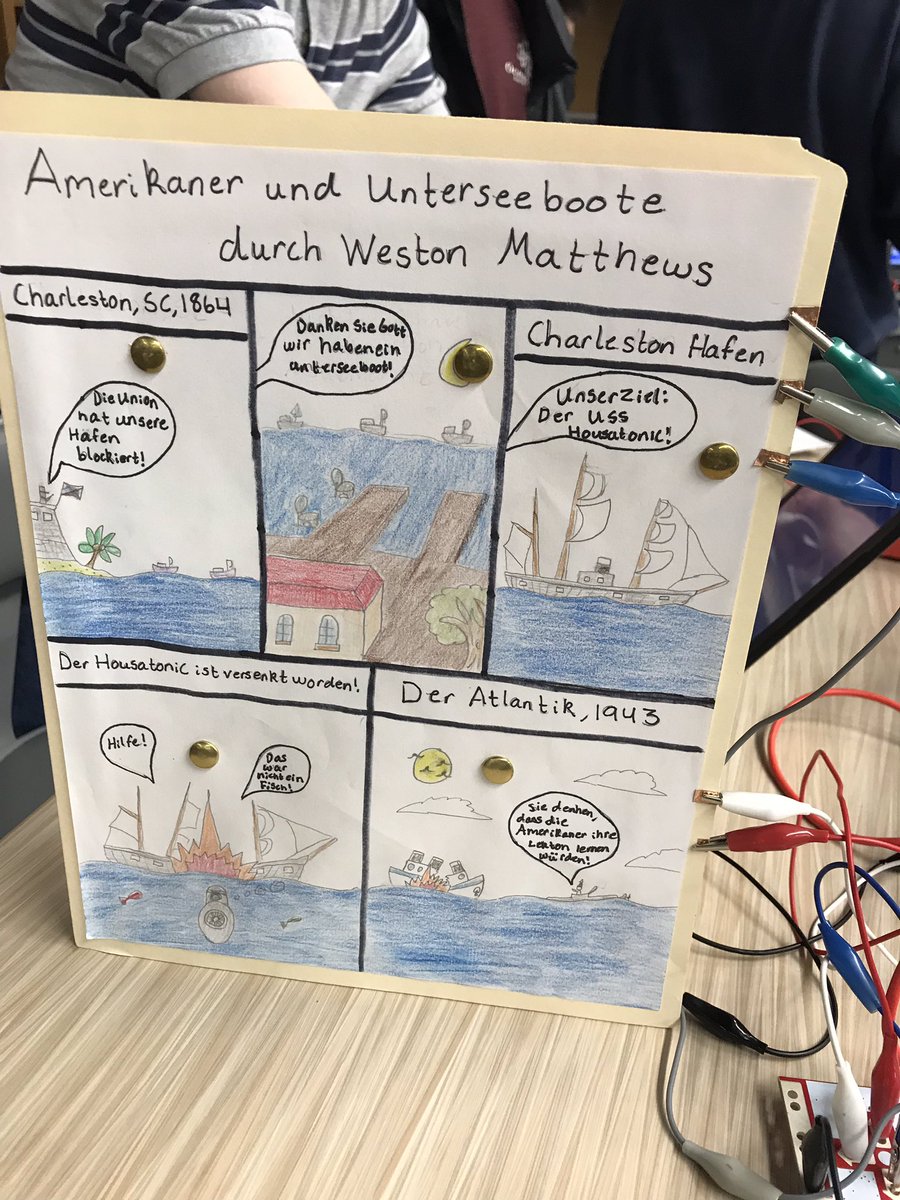 Amerikaner und Unterseeboote
durch Weston Matthews
Charleston, SC, 1864
Die Union
hat unsere
Hafen
blockiert!
Danken Sie Gott
wir haben ein
unterseeboot!
Charleston Hafen
Unser Ziel:
Der USS
Housatonic!
Der Housatonic ist versenkt worden!
Hilfe!
Das
war
nicht ein
Fisch!
Der Atlantik, 1943
Sie denken,
dass die
Amerikaner ihre
Lektion lernen
würden!